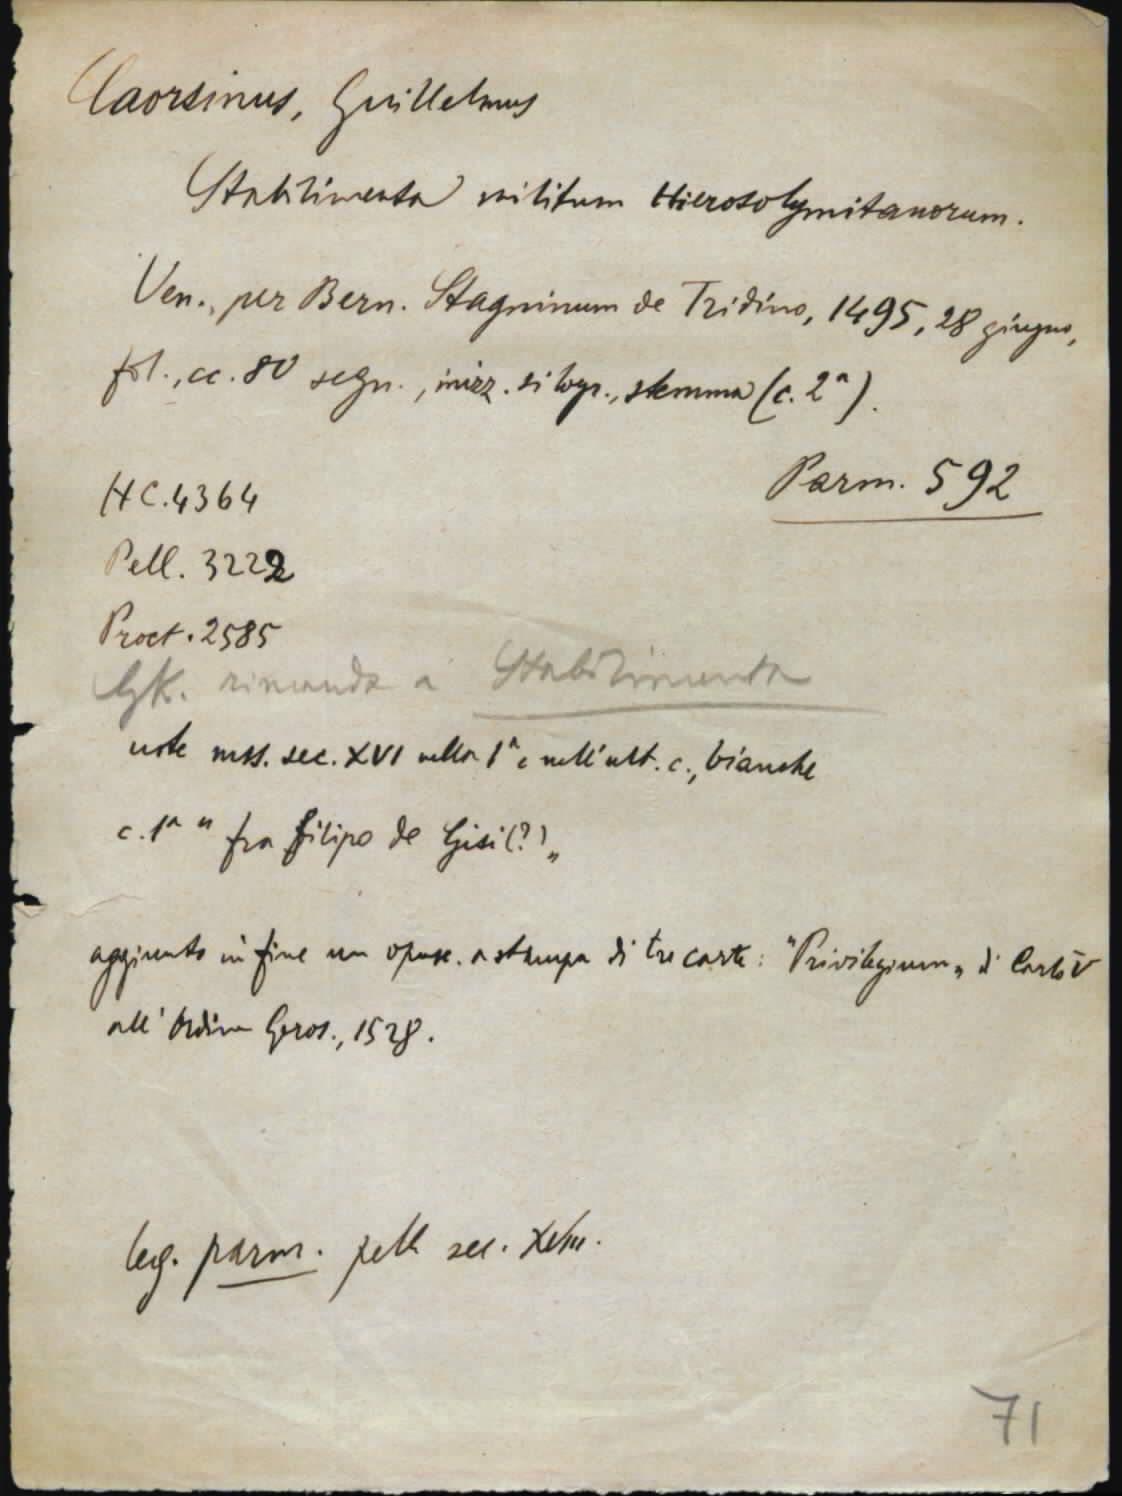 Caorsinus, Guillelmus
Stabilimenta militum Hierosolymitanorum.
Ven., per Bern. Stagninum de Tridino, 1495, 28 giugno,
fol., cc. 80 segn., inizz. silogr., stemma (c. 2ª).
Parm. 592
HC. 4364
Pell. 3222
Proct. 2585
GK. rimanda a Stabilimenta
note mss. sec. XVI nella 1ª e nell'ult. c., bianche
c. 1ª " fra filipo de Gisi (?) „
aggiunto in fine un opusc. a stampa di tre carte: "Privilegium„ di Carlo V
all'Ordine Geros., 1528.
leg. parm. pelle sec. XVIII.
71